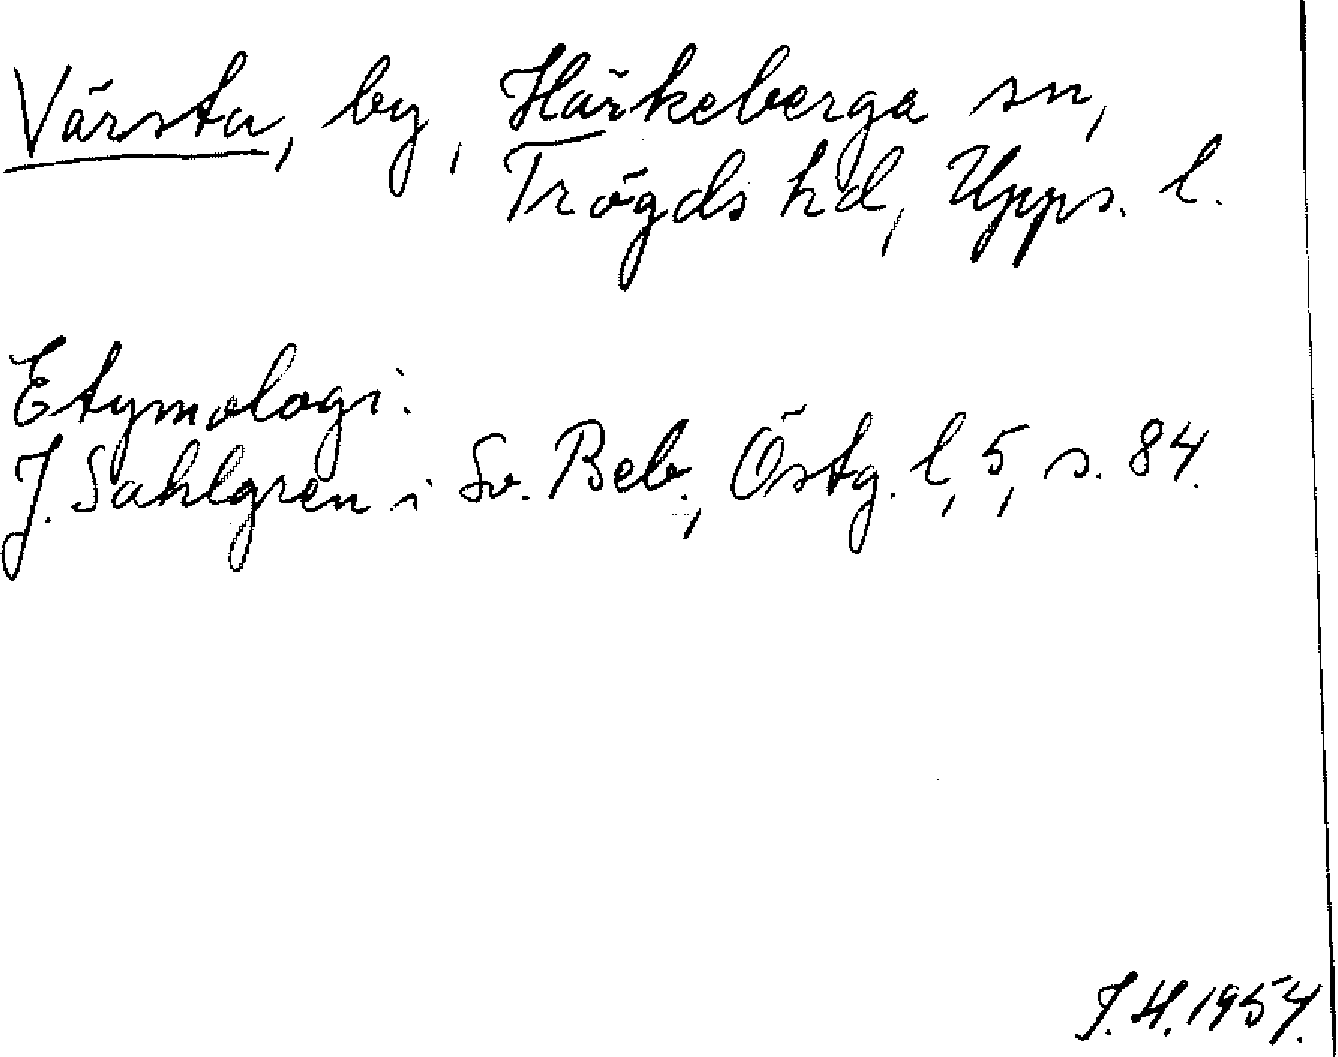 Värsta, by, Härkeberga sn,
Trögds hd, Upps. l.
Etymologi.
J. Sahlgren i Sv. Beb., Östg. l, 5, s. 84.
J.H. 1954.